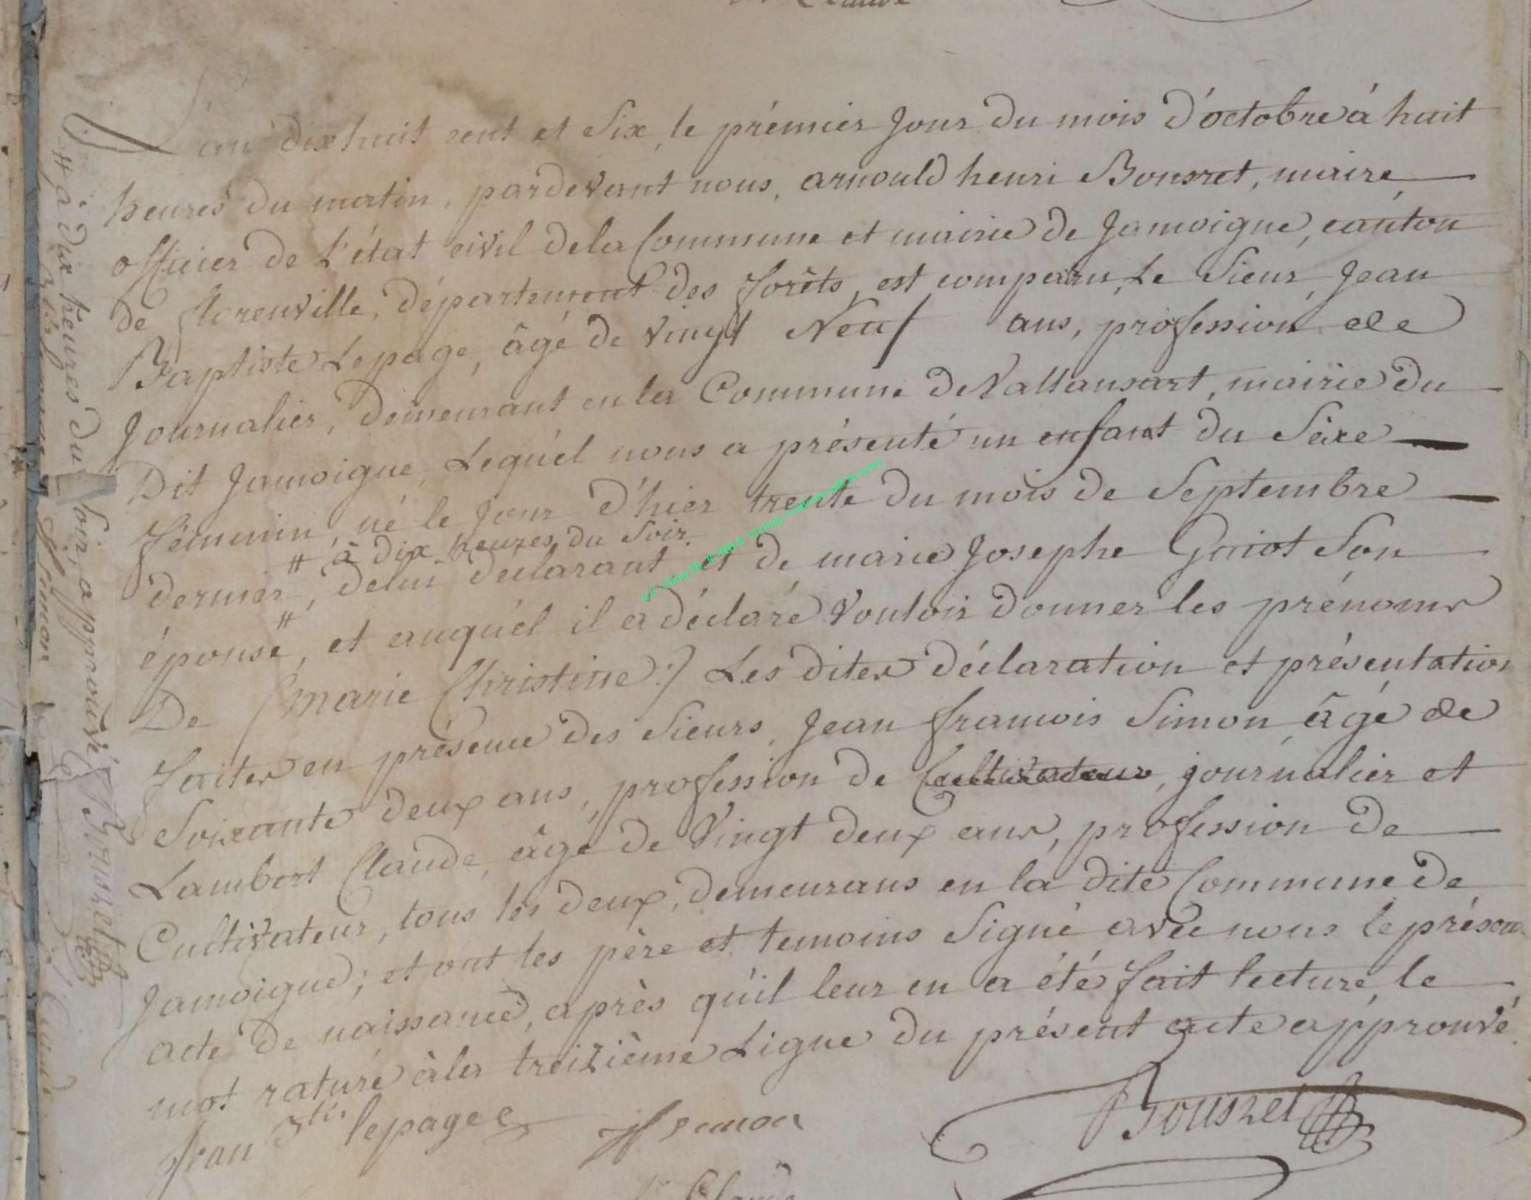 Claude
L'an dix huit cent et Six, le prémier Jour du mois d'octobre à huit
heures du matin, pardevant nous, arnould henri Bonsret, maire
officier de L'état civil de la Commune et mairie de Jamoigne, canton
de florenville, département des forêts, est comparu, Le Sieur, Jean
Baptiste Lepage, âgé de vingt Neuf ans, profession de
Journalier, demeurant en la Commune de Vallansart, mairie du
Dit Jamoigne, Lequél nous a présenté un enfant du Séxe
féminin, né le Jour d'hier trente du mois de Septembre
# à dix heures du Soir.
dernier, de lui déclarant et de marie Josephe Goriot Son
épouse #, et auquél il a déclaré Vouloir donner les prénoms
De (Marie Christine:) Les dites déclaration et présentation
faites en présence des Sieurs, Jean francois Simon, âgé de
Soixante deux ans, profession de Cultivateur, journalier et
Lambert Claude, âgé de Vingt deux ans, profession de
Cultivateur, tous les deux, demeurans en la dite Commune de
Jamoigne; et ont les père et temoins Signé avec nous le présent
acte de naissance, après qu'il leur en a été fait lecture, le
mot raturé à la treizième Ligne du présent acte approuvé.
Jean Bte lepage Jf Simon Bonsret
Claude
# à dix heures du Soir, approuvé Bonsret
Simon
Claude